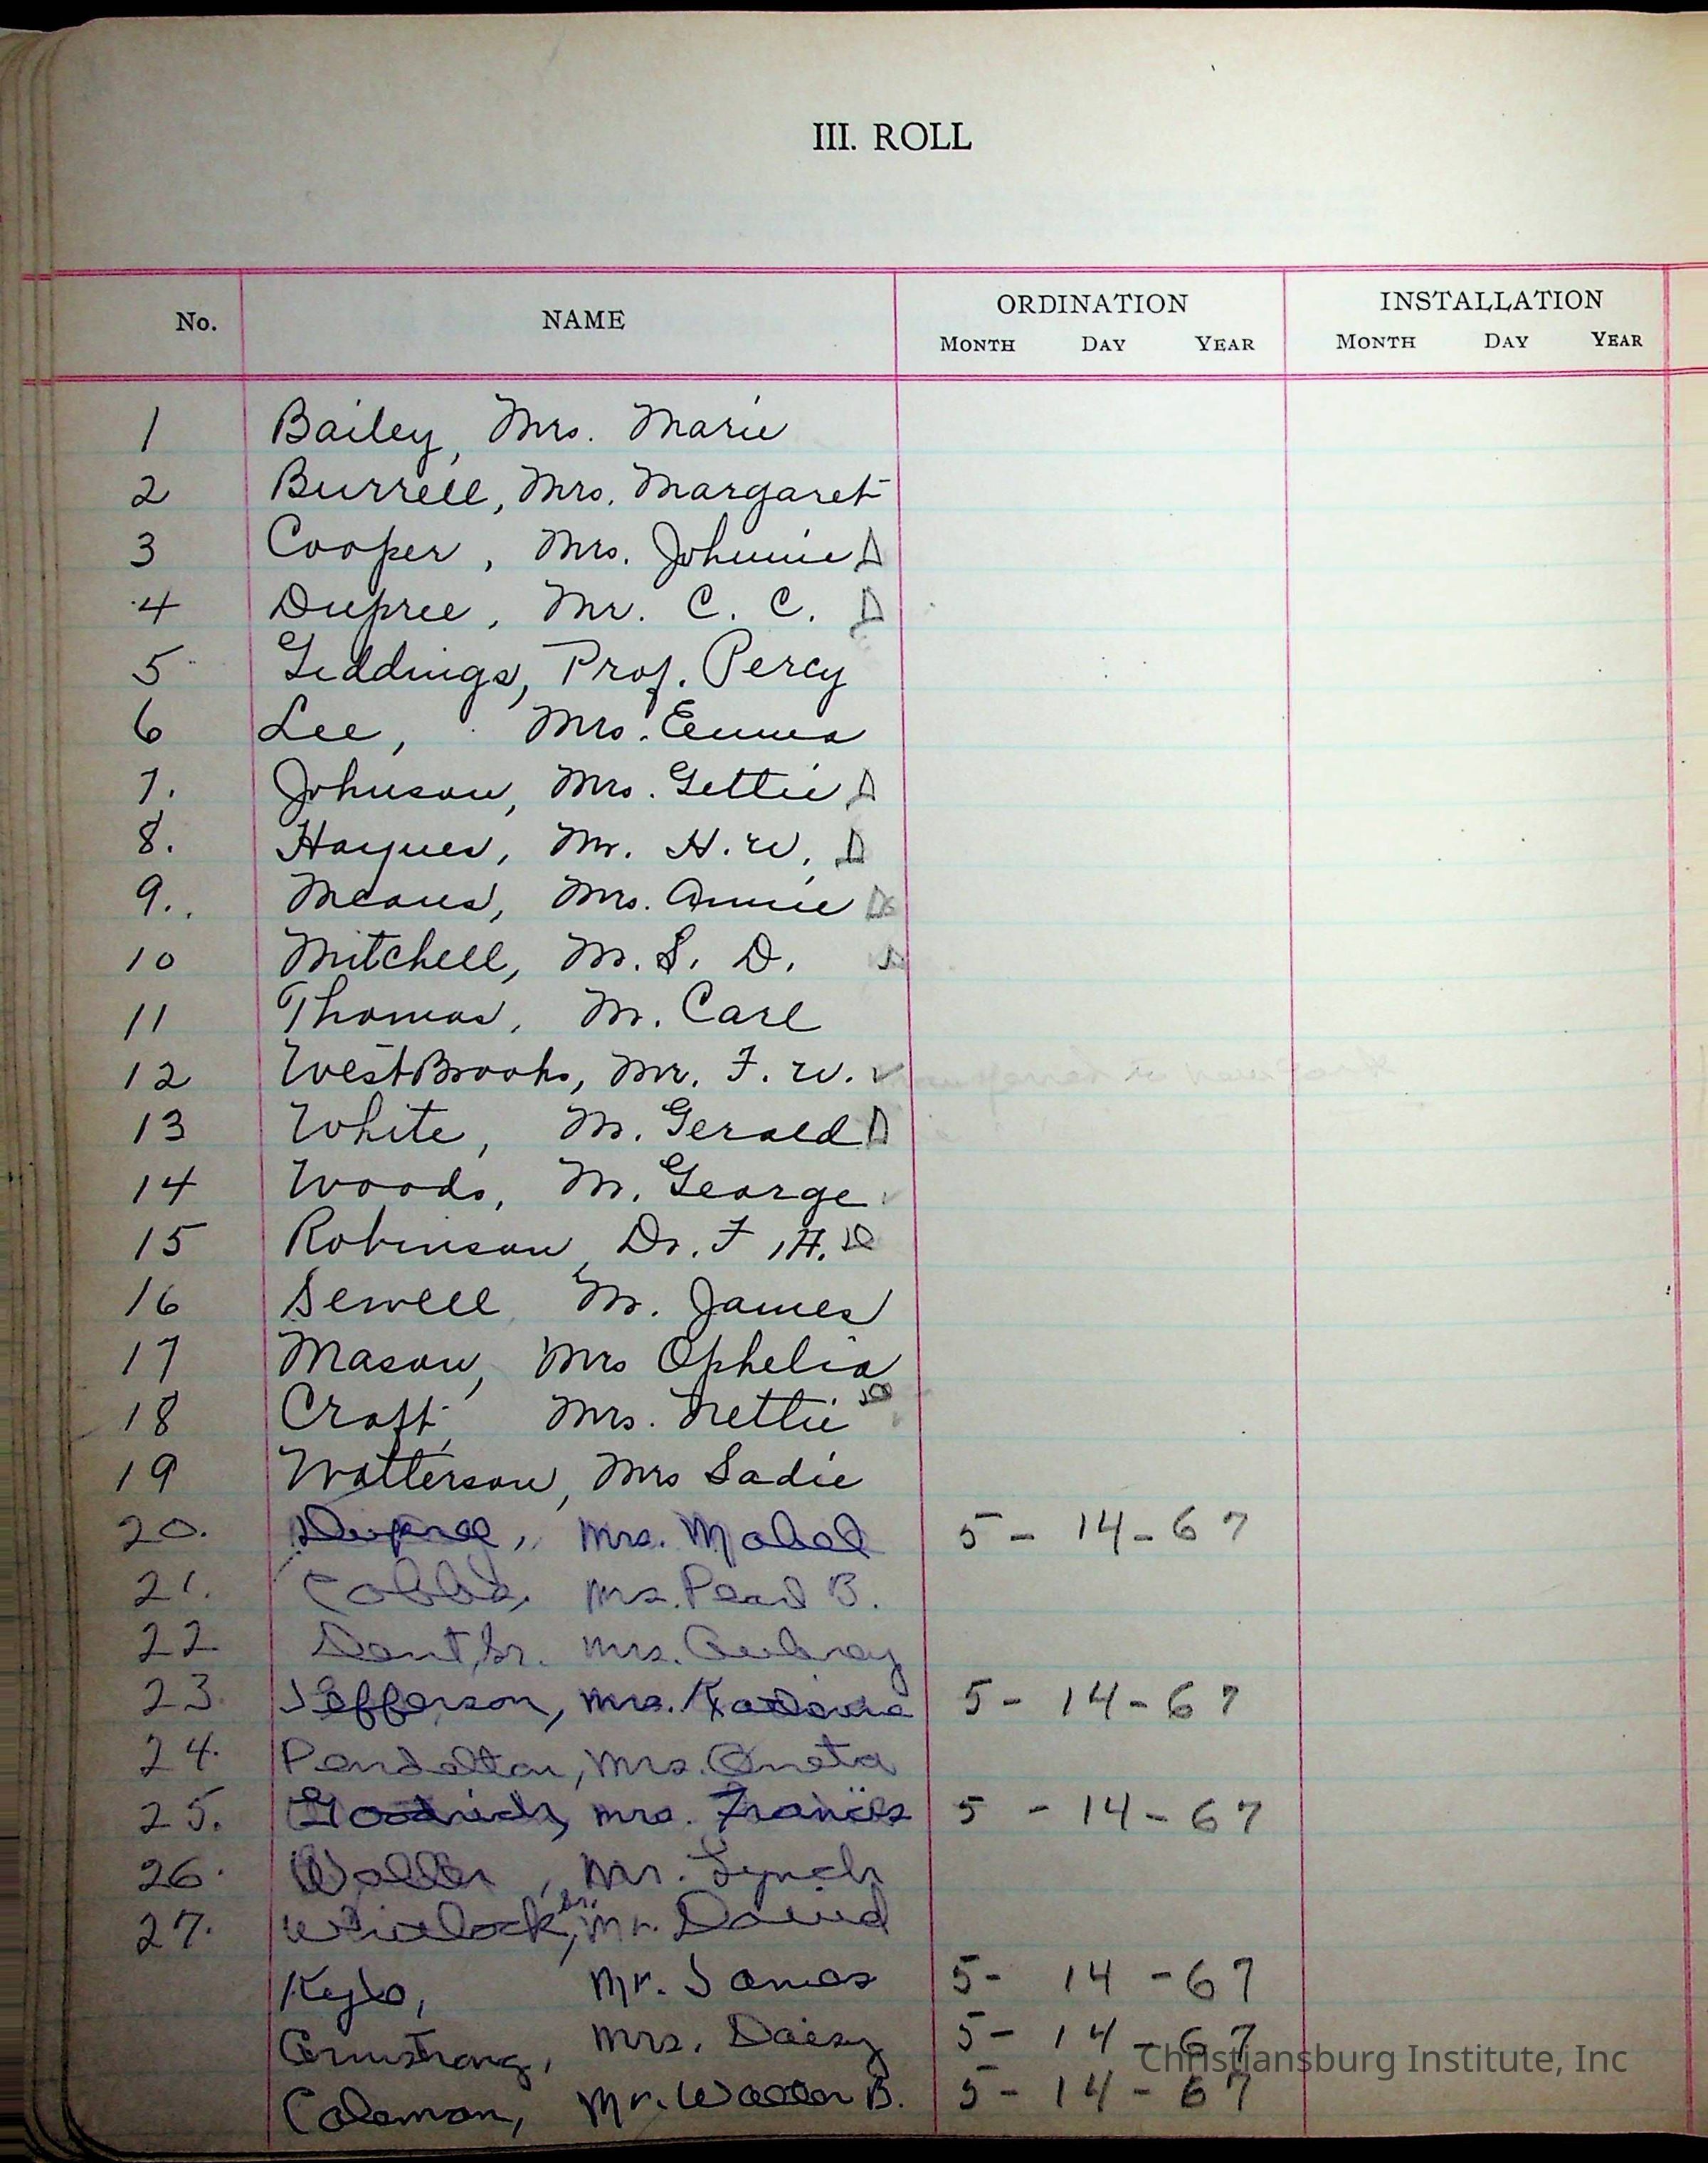 III. ROLL
No. NAME ORDINATION INSTALLATION
MONTH DAY YEAR MONTH DAY YEAR
1 Bailey, Mrs. Marie
2 Burrell, Mrs. Margaret
3 Cooper, Mrs. Johnnie D
4 Dupree, Mr. C. C. D
5 Giddings, Prof. Percy
6 Lee, Mrs. Emma
7. Johnson, Mrs. Gettie D
8. Haynes, Mr. H. W. D
9. Means, Mrs. Annie D
10 Mitchell, Mr. S. D.
11 Thomas, Mr. Carl
12 WestBrooks, Mr. F. W. ✓
13 White, Mr. Gerald D
14 Woods, Mr. George ✓
15 Robinson, Dr. F. H. D
16 Sewell, Mr. James
17 Mason, Mrs Ophelia
18 Craft, Mrs. Nettie
19 Watterson, Mrs Sadie
20. Dupree, Mrs. Mabel 5-14-67
21. Cobbs, Mrs. Pearl B.
22 Dent, Sr. Mrs. Aubrey
23. Jefferson, Mrs. 5-14-67
24. Pendelton, Mrs. Oneta
25. Goodrich, Mrs. Frances 5-14-67
26. Waller, Mr. Lynch
27. Sr. Mr. David
Kyle, Mr. James 5-14-67
Armstrong, Mrs. Daisy 5-14-67
Coleman, Mr. Walter B. 5-14-67
Christiansburg Institute, Inc